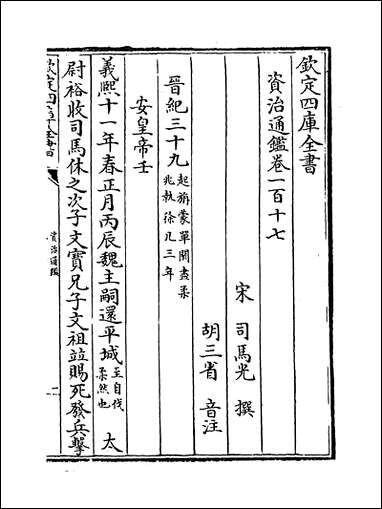 欽定四庫全書
資治通鑑卷一百十七
宋 司馬光 撰
胡三省 音注
晉紀三十九起旃蒙單閼盡柔兆執徐凡二年
安皇帝壬
義熙十一年春正月丙辰魏主嗣還平城至自伐柔然也 太
尉裕收司馬休之次子文寶兄子文祖並賜死發兵擊
資治通鑑